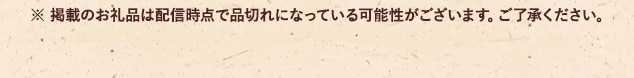 ※ 掲載のお礼品は配信時点で品切れになっている可能性がございます。ご了承ください。